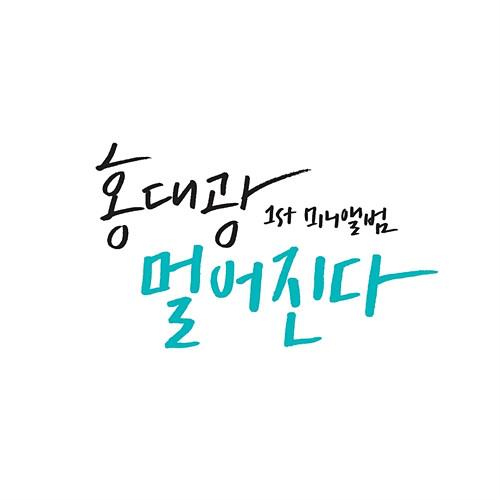 홍대광 1st 미니앨범
멀어진다